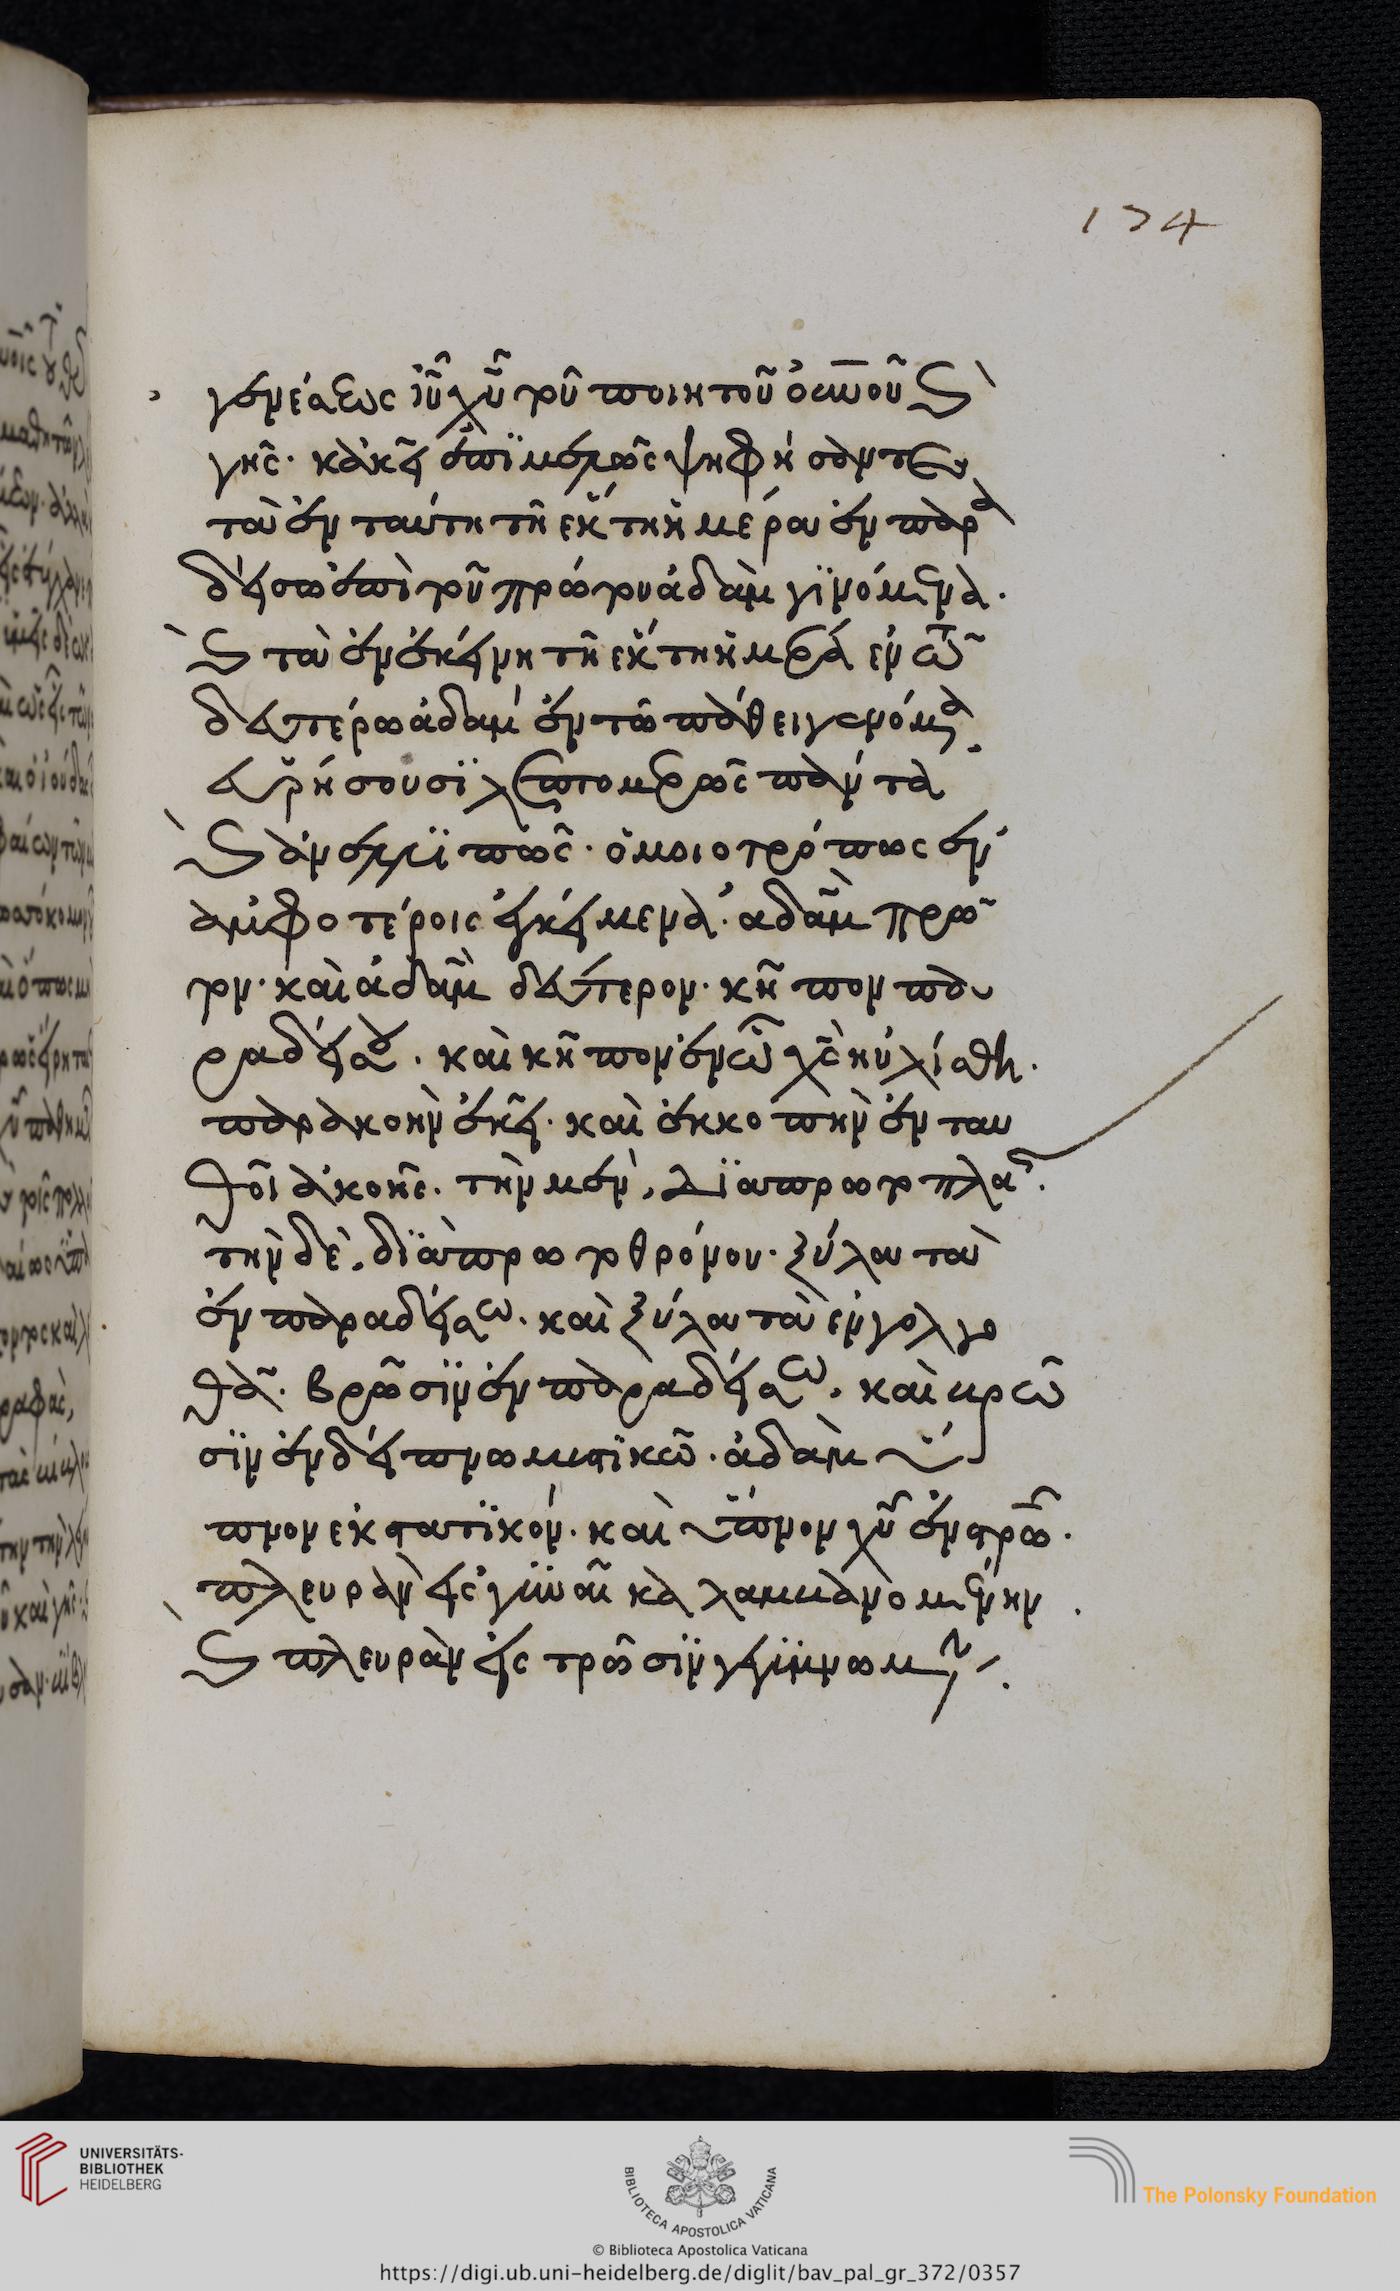 174
γενεάσεως ἰῦ χῦ τοῦ ποιητοῦ οὐνοῦ καὶ
γῆς· κἀκεῖ ἐπιμερῶς ψηφήσαντες
τὰ ἐν ταύτῃ τῇ ἕκτῃ ἡμέρα ἐν παρα
δείσω ἐπὶ τοῦ πρώτου ἀδὰμ γινόμενα·
καὶ τὰ ἐν ἐκείνη τῇ ἕκτῃ ἡμέρα ἐν τῶ
δευτέρω ἀδὰμ ἐν τῶ πάθει γενόμενα
εὑρήσουσι λεπτομερῶς πάντα
καὶ ἀνελλιπῶς· ὁμοιοτρόπως ἐν
ἀμφοτέροις ἐκείμενα· ἀδὰμ πρῶ
τον· καὶ ἀδὰμ δεύτερον· κῆπον πα
ραδείσου· καὶ κῆπον ἐν ὧ χς ηὐλίσθη·
παρακοὴν ἐκεῖ· καὶ ἐκκοπὴν ἐν ταυ
θοῖ ἀκοῆς· τὴν μὲν, διὰ πρωτοπλα
τὴν δὲ, διὰ πρωτοθρόνου· ξύλον τὰ
ἐν παραδείσω· καὶ ξύλον τὰ ἐν γολγο
θᾶ· βρῶσιν ἐν παραδείσω· καὶ βρῶ
σιν ἐν δείπνω μυστικῶ· ἀδὰμ ὕ
πνον ἐκστατικόν· καὶ ὕπνον χῦ ἐν στρῶ·
πλευρὰν εἰς γυναῖκα λαμβανομένην·
καὶ πλευρὰν εἰς τρῶσιν γεινομ
UNIVERSITÄTS-
BIBLIOTHEK
HEIDELBERG
BIBLIOTECA APOSTOLICA VATICANA
The Polonsky Foundation
© Biblioteca Apostolica Vaticana
https://digi.ub.uni-heidelberg.de/diglit/bav_pal_gr_372/0357